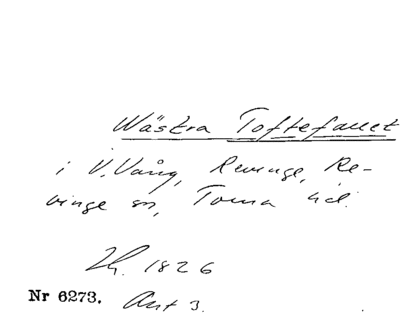 Wästra Toftefallet
i V. Vång, Revinge, Re-
vinge sn, Torna hd.
Lh. 1826
Nr 6273. Akt 3.